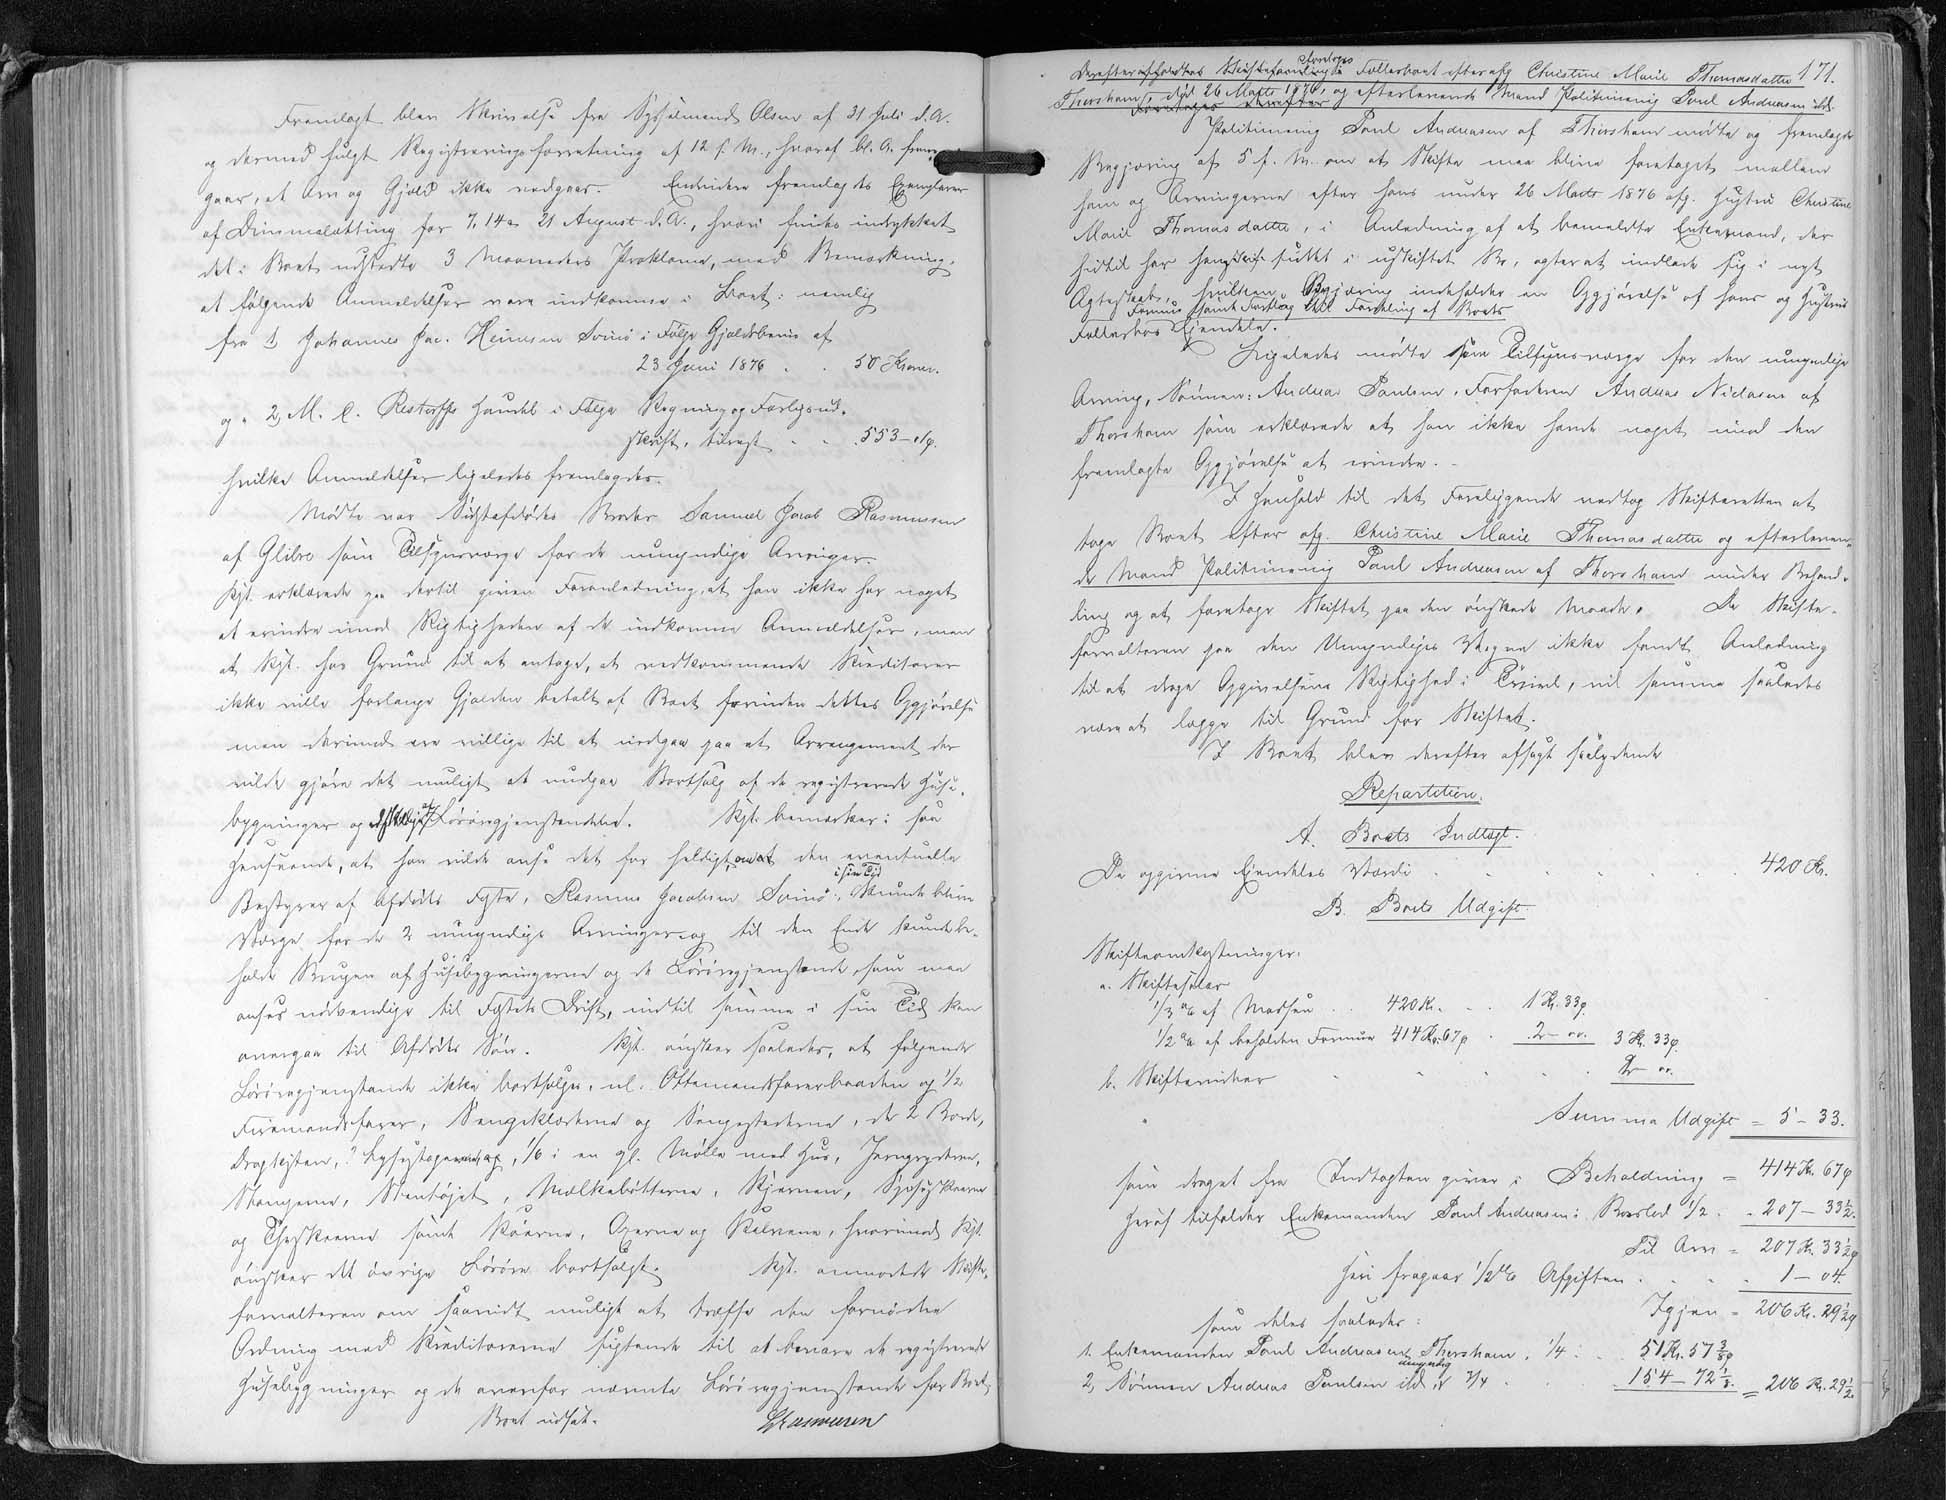 Fremlagt blev Skrivelse fra Sysselmand Olsen af 31 Juli d.A.
og dermed fulgt Registreringsforretning af 12 f. M., hvoraf bl. A. frem-
gaar, at Arv og Gjæld ikke vedgaas. Endvidere fremlagdes Exemplarer
af Dimmalætting for 7, 14 og 21 August d.A., hvori findes indrykket
det i Boet udstedte 3 Maaneders Proklama, med Bemærkning,
at følgende Anmeldelser vare indkomne i Boet: nemlig
fra 1, Johannes Jac. Heinesen Svinø i Følge Gjældsbevis af
23 Juni 1876 . . 50 Kroner.
og 2, M. C. Restorffs Handel i Følge Regning og
skrift, tilsagt . . 553 –
hvilke Anmeldelser ligeledes fremlagdes.
Mødte var Broder Samuel Jacob Rasmussen
af Glibre som Tilsynsværge for de umyndige Arvinger.
Kpt. erklærede paa dertil given Foranledning, at han ikke har noget
at erindre imod Rigtigheden af de indkomne Anmeldelser, men
at Kpt. har Grund til at antage, at vedkommende Kreditorer
ikke ville forlange Gjælden betalt af Boet forinden dettes Opgjørelse
men derimod ere villige til at indgaa paa et Arrangement der
vilde gjøre det muligt at undgaa Bortsalg af de registrerede Huse-
bygninger og Løsøregjenstande. Kpt. bemærker i saa
Henseende, at han vilde anse det for heldigt, om at den eventuelle
i sin Tid
Bestyrer af Afdødes Fæste, Rasmus Jacobsen Svinø, kunde blive
Værge for de 2 umyndige Arvinger og til den Ende kunde be-
holde Brugen af Husebygningerne og de Løsøregjenstande, som maa
anses nødvendige til Fæstets Drift, indtil samme i sin Tid kan
overgaa til Afdødes Søn. Kpt. ønsker saaledes, at følgende
Løsøregjenstande ikke bortsælges, nl. Ottemandsfarerbaaden og 1/2
Firemandsfarer, Sengeklæderne og Sengestederne, de 2 Borde,
Dragkisten, 1/6 i en gl. Mølle med Hus, Jerngryderne,
Stængerne, Stentøjet, Mælkebøtterne, Kjernen,
og Theskeerne samt Køerne, Oxerne og Kalvene, hvorimod Kpt.
ønsker det øvrige Løsøre bortsolgt. Kpt. anmodede Skifte-
forvalteren om saavidt muligt at træffe den fornødne
Ordning med Kreditorerne sigtende til at bevare de registrerede
Husebygninger og de ovenfor nævnte Løsøregjenstande for Boet.
Boet udsat.
171.
Foretoges
Derefter Skifte Fællesboet efter afg. Christine Marie Thomasdatter
Thorshavn, død 26 Marts 1876, og efterlevende Mand Politimenig Poul Andreasen ibd.
Politimenig Poul Andreasen af Thorshavn mødte og fremlagde
Begjæring af 5 f. M. om at Skifte maa blive foretaget mellem
ham og Arvingerne efter hans under 26 Marts 1876 afg. Hustru Christine
Marie Thomasdatter, i Anledning af at bemeldte Enkemand, der
hidtil har siddet i uskiftet Bo, agter at indlade sig i nyt
Ægteskab, hvilken Begjæring indeholder en Opgjørelse af hans og Hustrus
Formue samt Forslag til Fordeling af Boets
Fællesbos Ejendele.
Ligeledes mødte som Tilsynsværge for den umyndige
Arving, Sønnen: Andreas Poulsen, Farfaderen Andreas Niclasen af
Thorshavn som erklærede at han ikke havde noget imod den
fremlagte Opgjørelse at erindre.
I Henhold til det Foreliggende vedtog Skifteretten at
tage Boet efter afg. Christine Marie Thomasdatter og efterleven-
de Mand Politimenig Poul Andreasen af Thorshavn under Behand-
ling og at foretage Skiftet paa den ønskede Maade. Da Skifte-
forvalteren paa den Umyndiges Vegne ikke fandt Anledning
til at drage Opgivelsens Rigtighed i Tvivl, vil samme saaledes
være at lægge til Grund for Skiftet.
I Boet blev derefter afsagt saalydende
Repartition.
A. Boets Indtægt.
De opgivne Ejendeles Værdi . . . . 420 Kr.
B. Boets Udgift.
Skifteomkostninger:
a. Skiftesalær
1/3 % af Massen . . 420 Kr. . . 1 Kr. 33 ø.
1/2 % af beholden Formue 414 Kr. 67 ø . 2 – 00. 3 Kr. 33 ø.
b. Skiftevidner . . . . 2 – 00.
Summa Udgift = 5 – 33.
som draget fra Indtægten giver i Beholdning = 414 Kr. 67 ø
Heraf tilfalder Enkemanden Poul Andreasen i Boeslod 1/2 . . 207 – 33 1/2.
Til Arv = 207 Kr. 33 1/2 ø
Heri fragaar 1/2 % Afgiften . . . 1 – 04.
Igjen = 206 Kr. 29 1/2 ø
som deles saaledes:
1. Enkemanden Poul Andreasen Thorshavn, 1/4 . . 51 Kr. 57 3/8 ø
umyndig
2, Sønnen Andreas Poulsen ibd. 3/4 . . 154 – 72 1/8. = 206 Kr. 29 1/2.